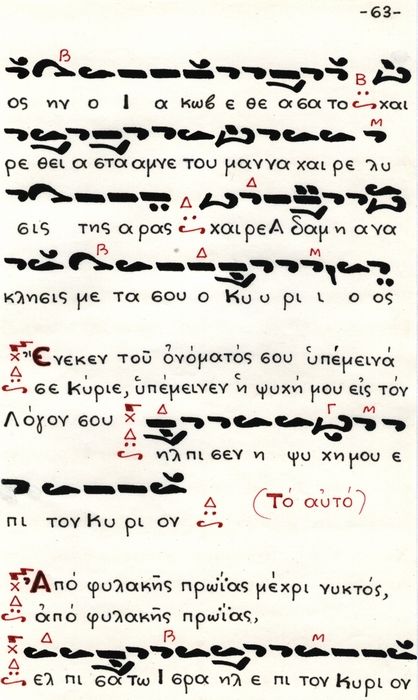 -63-
ος ην ο Ι α κωβ ε θε ασα το και
ρε θει α στα αμνε του μαννα και ρε λυ
σις της α ρας και ρε Α δαμ η ανα
κλησις με τα σου ο Κυ υ ρι ι ο ος
Ἕνεκεν τοῦ ὀνόματός σου ὑπέμεινά
σε Κύριε, ὑπέμεινεν ἡ ψυχή μου εἰς τόν
Λόγον σου
ηλ πι σεν η ψυ χη μου ε
πι τον Κυ ρι ον (Τό αὐτό)
Ἀπό φυλακῆς πρωΐας μέχρι νυκτός,
ἀπό φυλακῆς πρωΐας,
ελ πι σα τω Ι σρα ηλ ε πι τον Κυρι ον